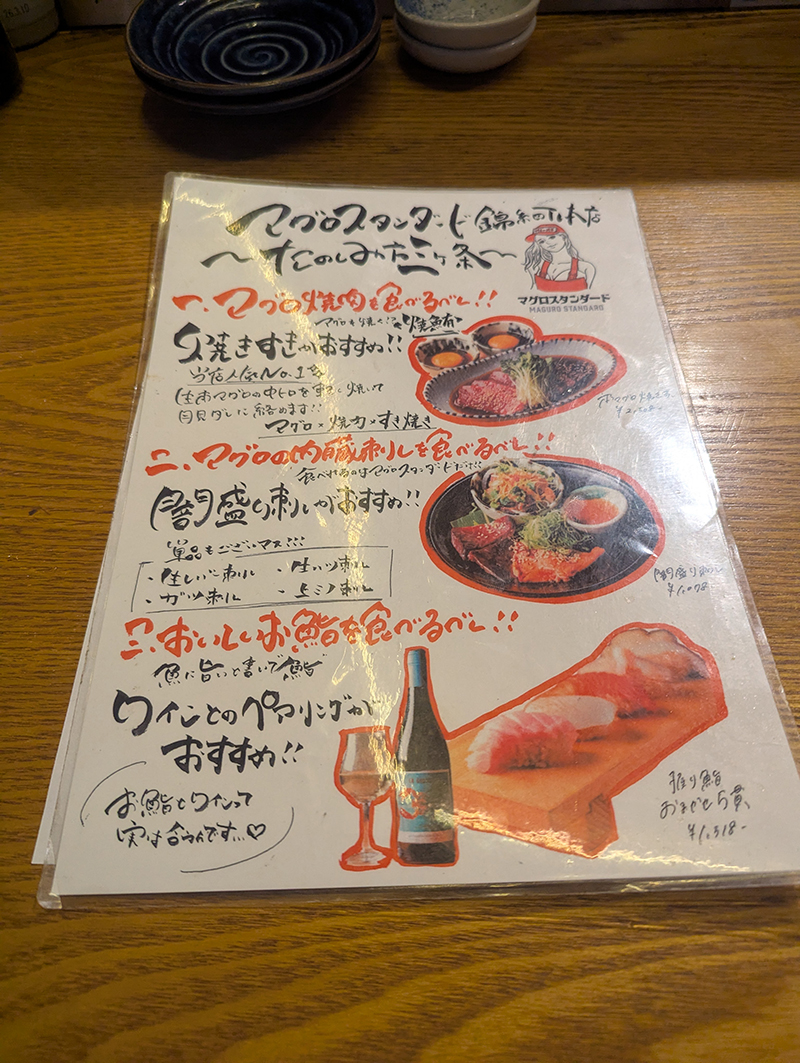 マグロスタンダード 錦糸町本店
〜たのしみ方三ヶ条〜
マグロスタンダード
MAGURO STANDARD
一、マグロ焼肉を食べるべし!!
マグロを焼く!?
焼きすきがおすすめ!!
当店人気No.1
生本マグロの中トロを軽く焼いて
卵黄ダレに絡めます!!
マグロ×焼肉×すき焼き
本マグロ焼きすき
二、マグロの内臓刺しを食べるべし!!
食べれるのはマグロスタンダードだけ!!
闇盛り刺しがおすすめ!!
単品もございマス!!!
・生レバー刺し ・生ハツ刺し
・ガツ刺し ・上ミノ刺し
闇盛り刺し
¥1,078
三、おいしいお鮨を食べるべし!!
魚に旨いと書いて鮨
ワインとのペアリングが
おすすめ!!
お鮨とワインって
実は合うんです...♡
握り鮨
おまかせ5貫
¥1,518-